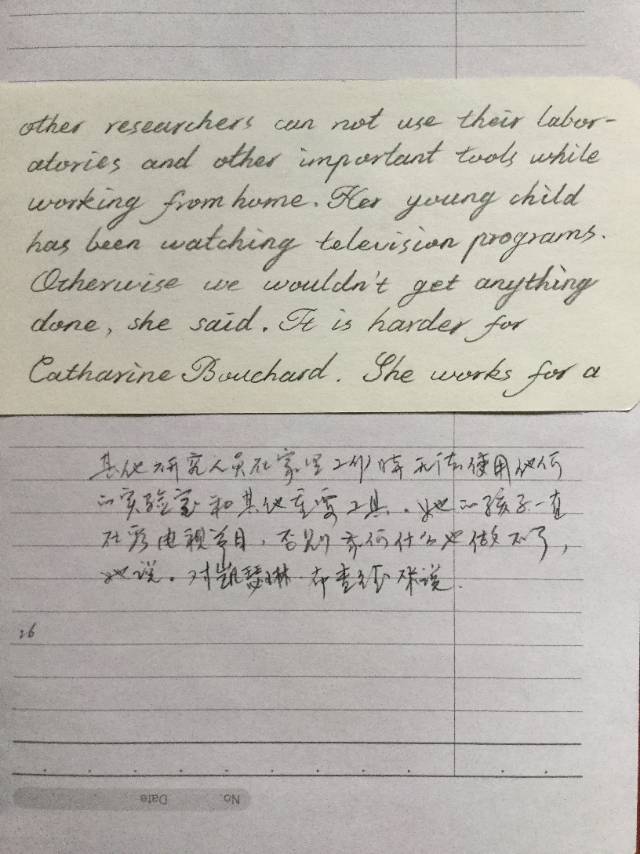 other researchers can not use their labor-
atories and other important tools while
working from home. Her young child
has been watching television programs.
Otherwise we wouldn't get anything
done, she said. It is harder for
Catharine Bouchard. She works for a
其他研究人员在家里工作时无法使用他们
的实验室和其他重要工具。她的孩子一直
在看电视节目,否则我们什么也做不了,
她说。对凯瑟琳 布查德
26
No. Date